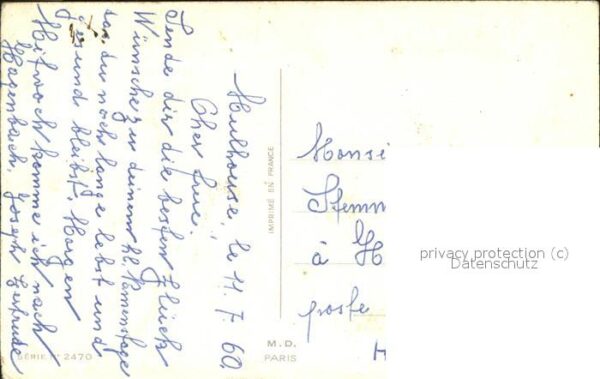 Mulhouse, le 11. 7. 60.
Cher
Sende dir die besten Glück
Wünsche zu deinem hl. Namenstage
das du noch lange lebst und
gesund bleibst. Morgen
Mitwoch komme ich nach
Hagenbach. Joseph Gertrude
IMPRIMÉ EN FRANCE
Monsi
Stemm
à H
poste
H
M. D.
PARIS
SÉRIE N° 2470
privacy protection (c)
Datenschutz